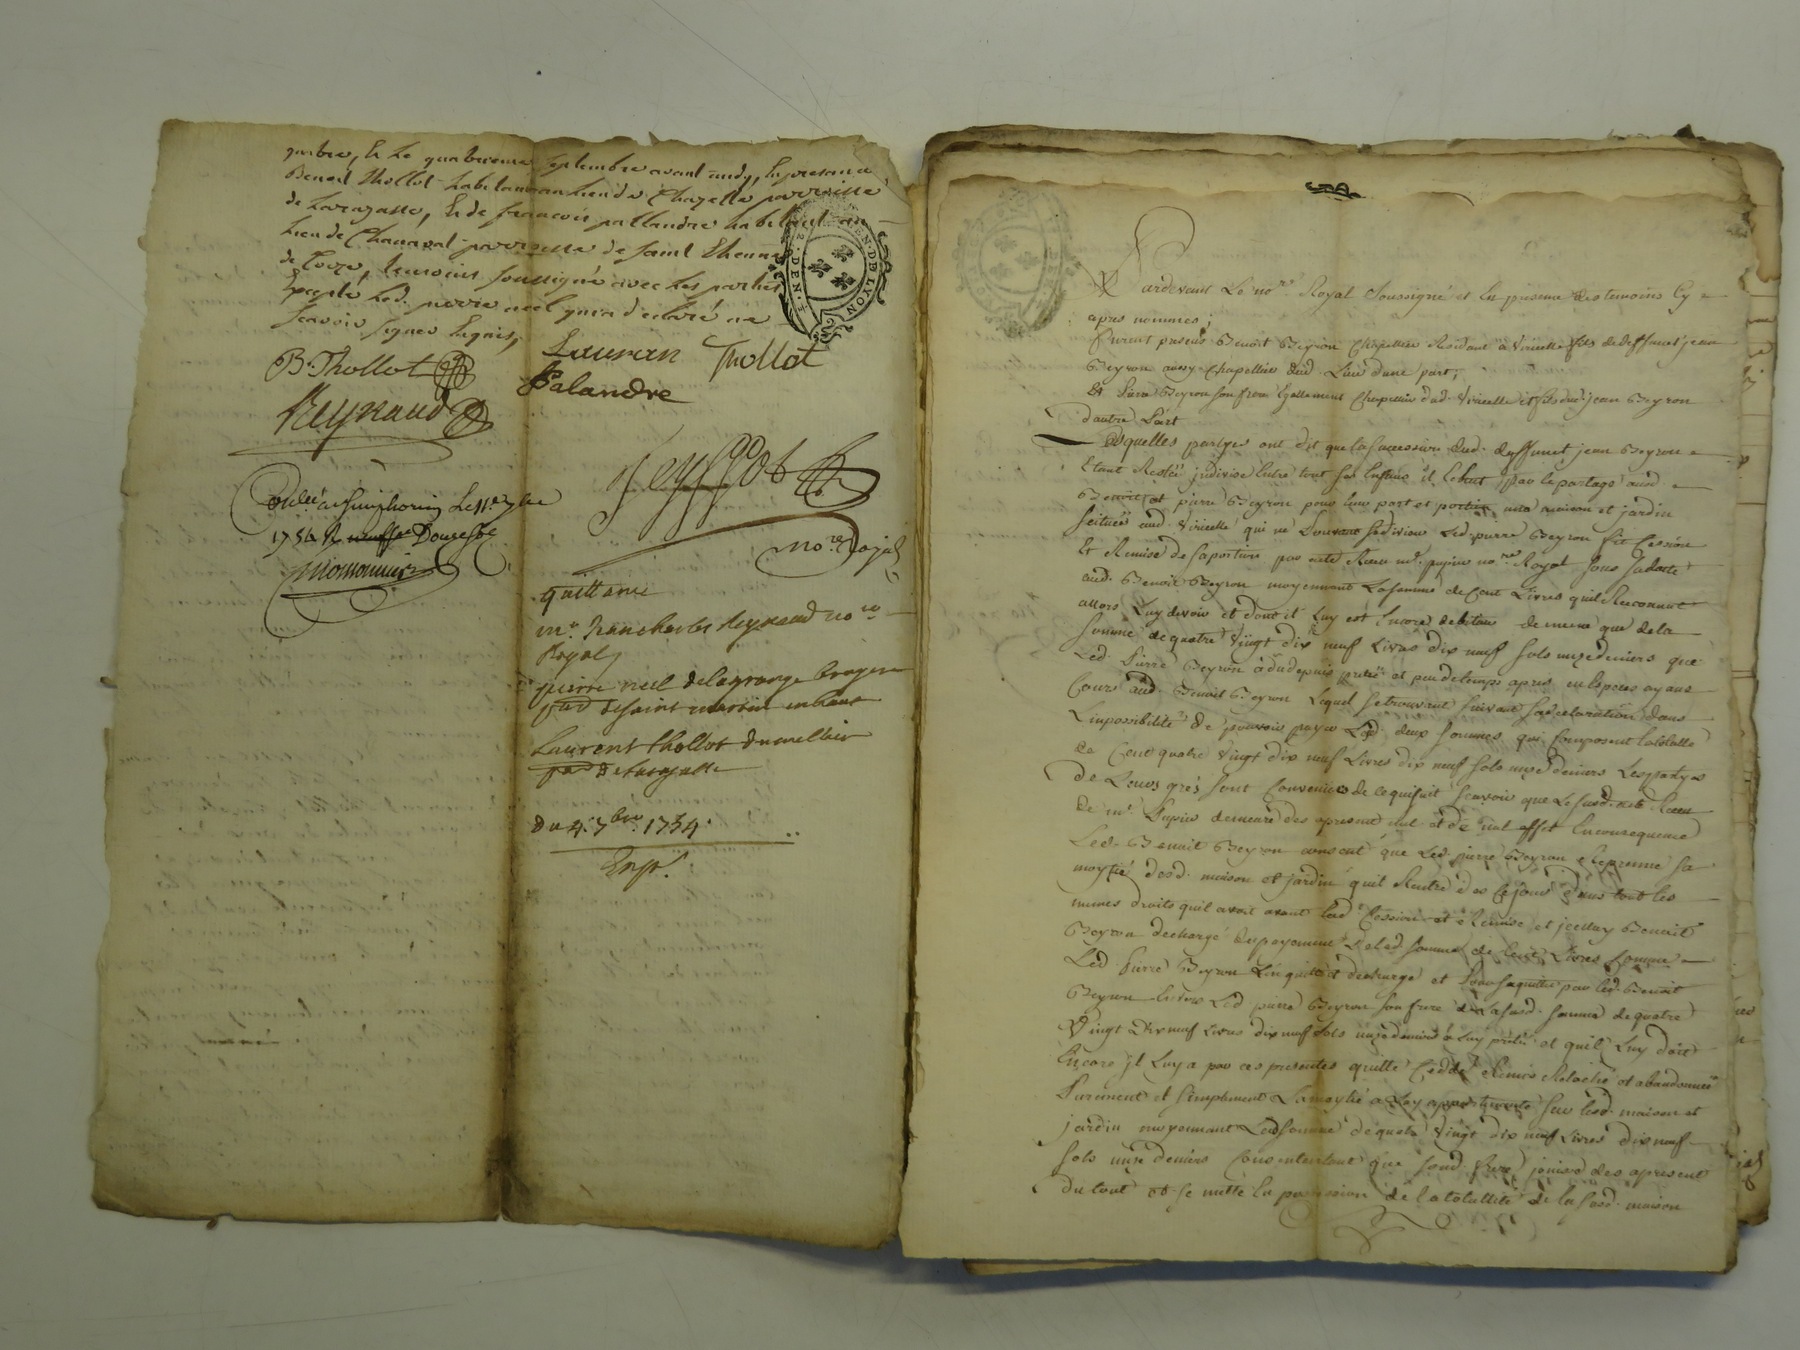 quatre, & le quatrieme septembre avant midy, En presence
Benoit Thollot habitant au lieu de Chazelle parroisse
de Larajasse, & de françois pallandre habitant au
lieu de parroisse de saint Etienne
de temoins soussignés avec les parties
Excepté led. pierre neel qui a declaré ne
scavoir signer Enquis,
B. Thollot
Lauran Thollot
Palandre
Reynaud
Jeyssot
no.re Royal
a Simphorien Le 11e 7bre
1734
quittance
mr. Jean charles Reynaud no.re
Royal
pierre neel delagrange
par. de saint martin en haut
Laurent thollot
par. de Larajasse
Du 4. 7bre. 1734.
Exp.
LYON
Pardevant Le no.re Royal Soussigné et En presence des temoins Cy
apres nommes;
Furent presens Benoit Beyron Chapellier Residant a Viricelle fils de deffunct jean
Beyron aussy Chapellier dud. Lieu d'une part;
Et Pierre Beyron son frere Egallement Chapellier dud. Viricelle et fils dud. jean Beyron
d'autre Part
Lesquelles partyes ont dit que la succession dud. deffunct jean Beyron
Etant Restée jndivise Entre tout ses Enfans il Echut par le partage aud.
Benoit et pierre Beyron pour leur part et portion une maison et jardin
scituées aud. Viricelle qui ne Led. pierre Beyron fit Cession
Et Remise de sa portion par acte Reçu mr. pupier no.re Royal sous sa datte
aud. Benoit Beyron moyennant La somme de Cent Livres quil Reconnut
allors Luy devoir et dont il Luy est Encore debiteur de meme que de la
somme de quatre Vingt dix neuf Livres dix neuf sols unze deniers que
Led. Pierre Beyron a du depuis pretée et peu de temps apres en Especes ayant
Cours aud. Benoit Beyron Lequel se trouvant suivant sa declaration dans
L'impossibilité de pouvoir payer Led. deux sommes qui Composent la totalle
de Cent quatre Vingt dix neuf Livres dix neuf sols unze deniers Les partyes
de Leurs grés sont Convenues de ce qui suit scavoir que Le susd. acte Recu
de mr. Pupier demeure des apresent nul et de nul effet En consequence
Led. Benoit Beyron consent que Led. pierre Beyron Reprenne sa
moytié desd. maison et jardin quil Rentre des ce jour dans tout les
memes droits quil avoit avant lad. Cession et Remise et jcelluy Benoit
Beyron dechargé du payement de lad. somme de Cent Livres Comme
Led. Pierre Beyron L'en quitte et decharge et pour s'aquitter par led. Benoit
Beyron Envers Led. pierre Beyron son frere de La susd. somme de quatre
Vingt dix neuf Livres dix neuf sols unze deniers a Luy pretée et quil Luy doit
Encore jl Luy a par ces presentes quitté Ceddé Remis Relaché et abandonné
Purement et simplement La moytié a Luy appartenante sur lesd. maison et
jardin moyennant Lad. somme de quatre Vingt dix neuf Livres dix neuf
sols unze deniers Consentant que sond. frere jouisse des apresent
du tout et se mette En possession de la totallité de la susd. maison